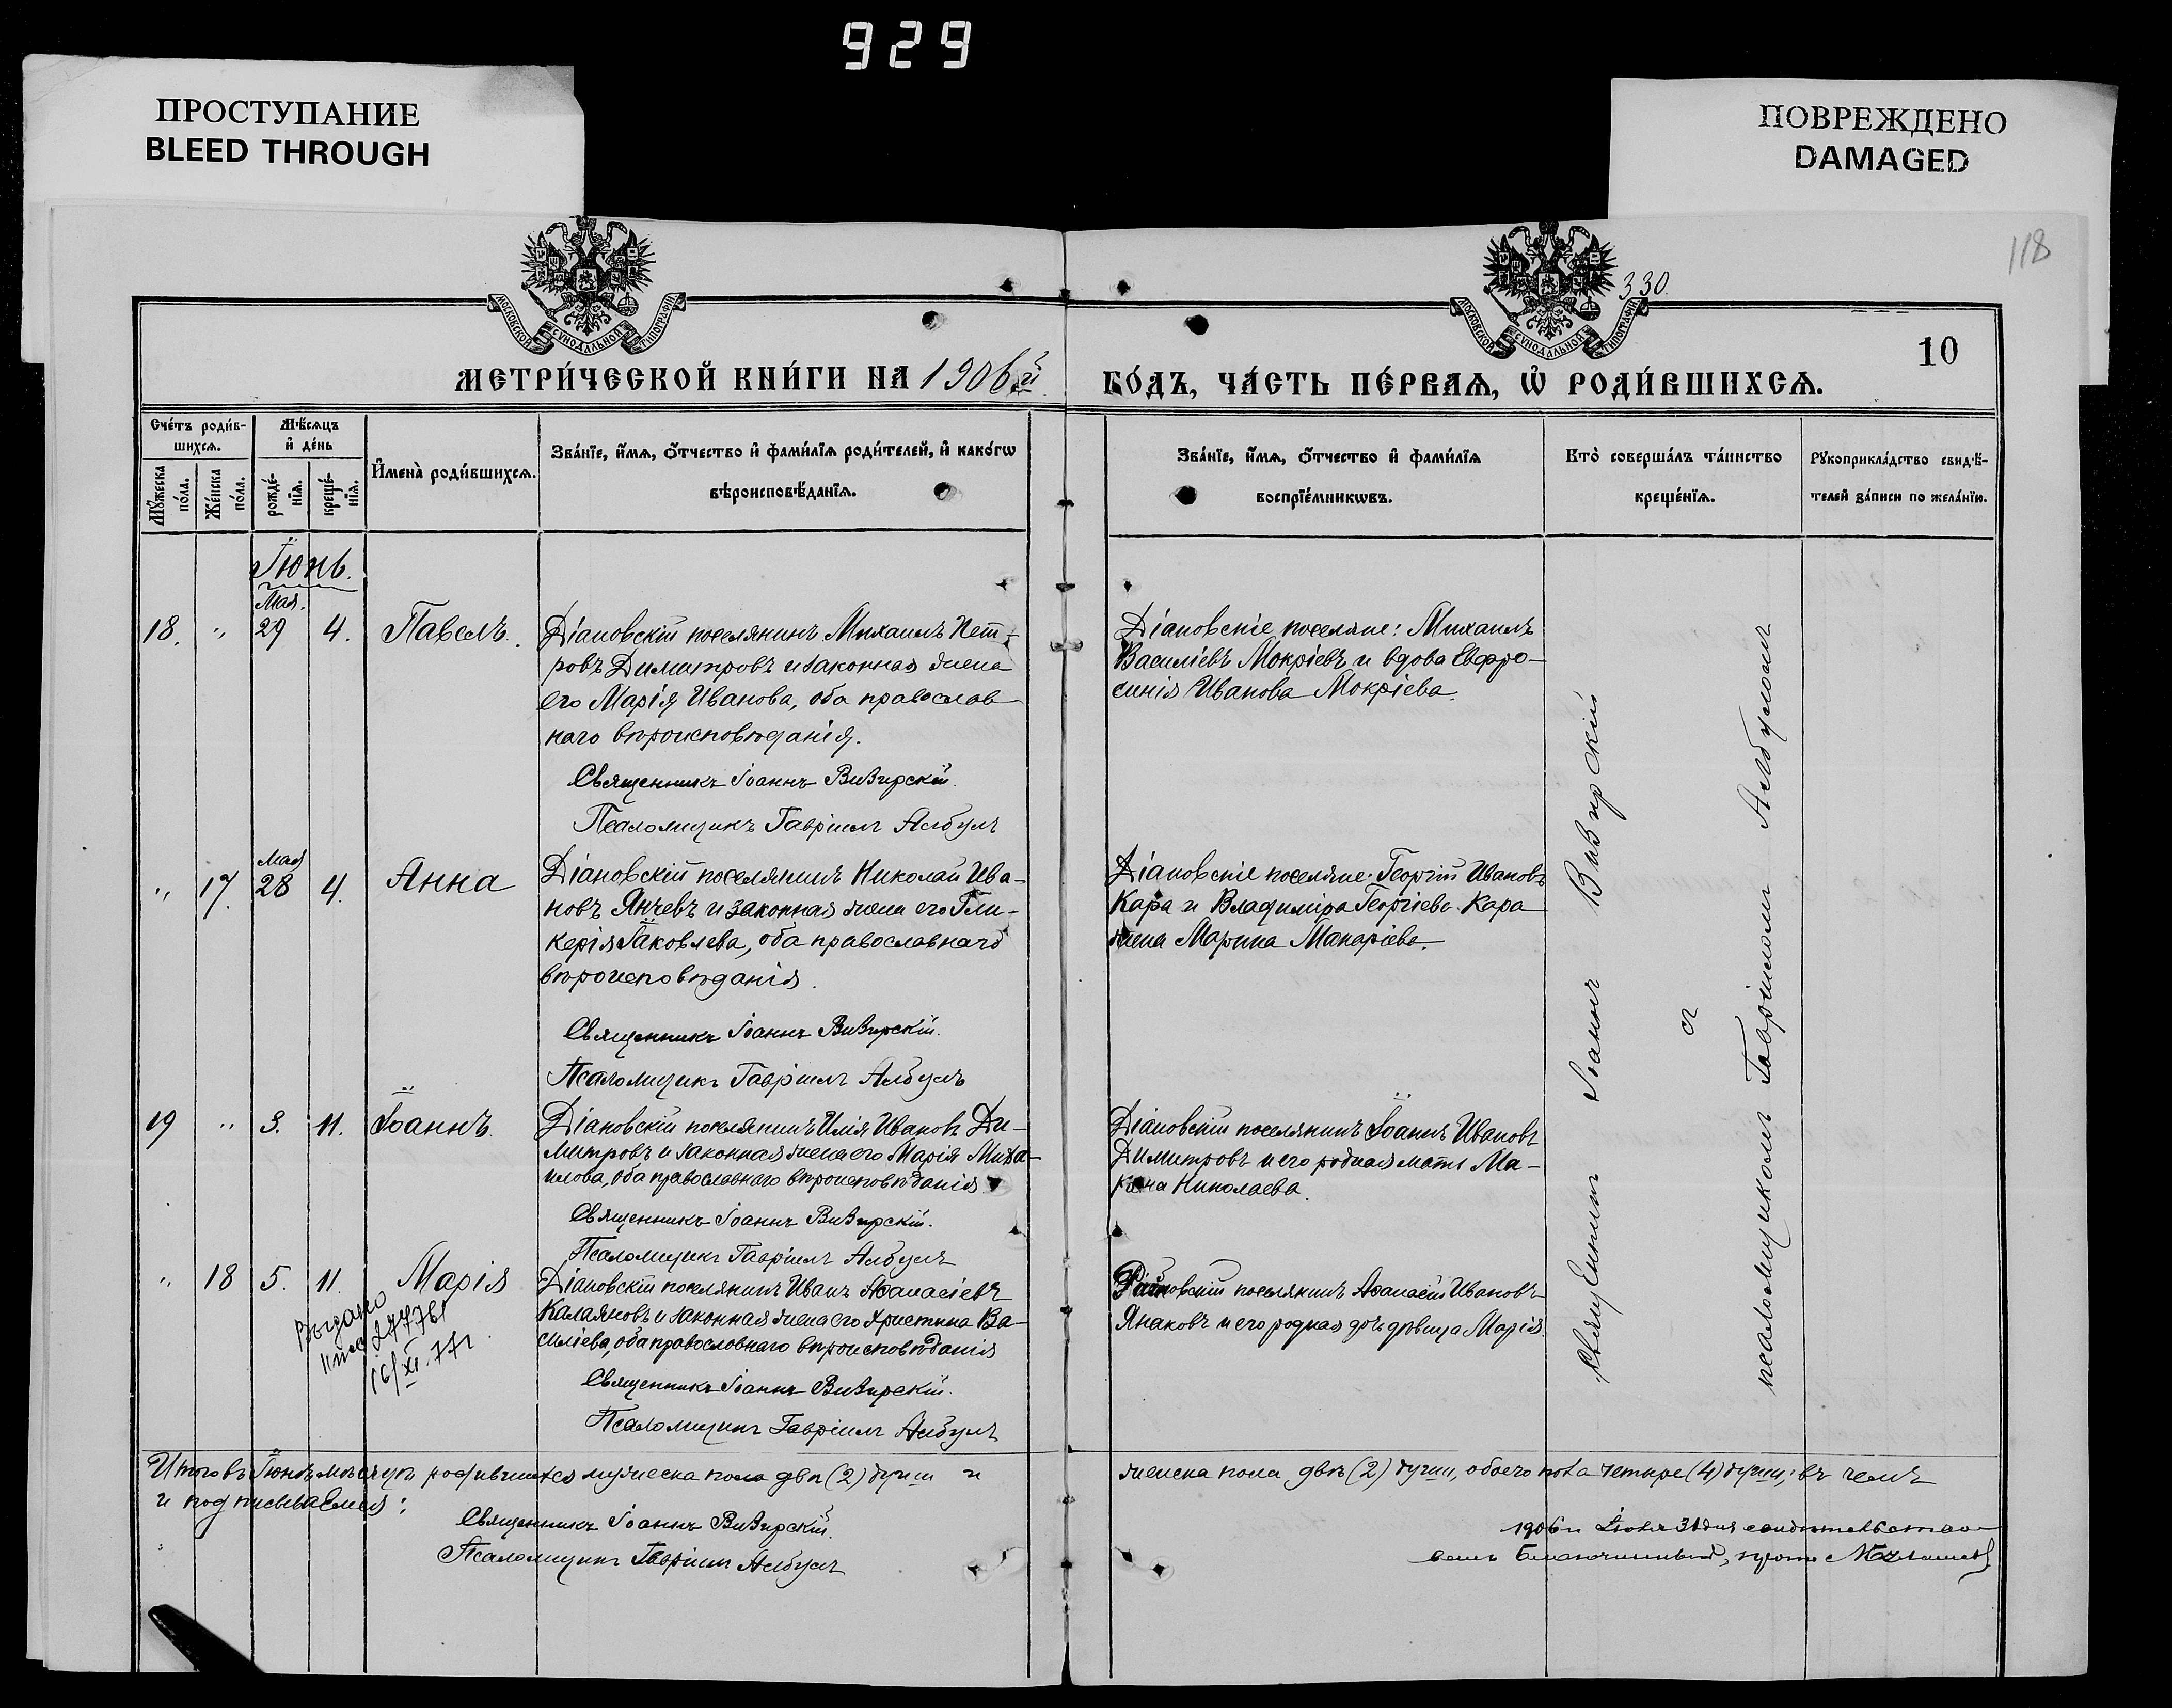 929
ПРОСТУПАНИЕ
BLEED THROUGH
ПОВРЕЖДЕНО
DAMAGED
118
330.
10
МОСКОВСКОЙ СѴНОДАЛЬНОЙ ТИПОГРАФІИ
МОСКОВСКОЙ СѴНОДАЛЬНОЙ ТИПОГРАФІИ
МЕТРИ́ЧЕСКОЙ КНИ́ГИ НА 1906й
ГО́ДЪ, ЧА́СТЬ ПЕ́РВАѦ, Ѡ РОДИ́ВШИХСѦ.
Сче́тъ роди́в-
шихсѧ.
Мѣ́сѧцъ
и де́нь
Мꙋ́жеска
по́ла.
Же́нска
по́ла.
рожде́-
нїѧ.
креще́-
нїѧ.
И́мена роди́вшихсѧ.
Зва́нїе, и́мѧ, ѻ́тчество и фами́лїѧ роди́телей, и како́гѡ
вѣроисповѣ́данїѧ.
Зва́нїе, и́мѧ, ѻ́тчество и фами́лїѧ
воспрїе́мникѡвъ.
Кто̀ соверша́лъ та́инство
креще́нїѧ.
Рꙋкоприкла́дство свидѣ́-
телей за́писи по жела́нїю.
Іюнь.
Мая.
18. " 29 4. Павелъ.
Діановскій поселянинъ Михаилъ Пет-
ровъ Димитровъ и законная жена
его Марія Иванова, оба православ-
наго вѣроисповѣданія.
Священникъ Іоаннъ Визирскій.
Псаломщикъ Гавріилъ Албулъ
Діановскіе поселяне: Михаилъ
Василіевъ Мокріевъ и вдова Евфро-
синія Иванова Мокріева.
Мая
" 17. 28 4. Анна
Діановскій поселянинъ Николай Ива-
новъ Янчевъ и законная жена его Гли-
керія Іаковлева, оба православнаго
вѣроисповѣданія.
Священникъ Іоаннъ Визирскій.
Псаломщикъ Гавріилъ Албулъ
Діановскіе поселяне: Георгій Ивановъ
Кара и Владиміра Георгіева Кара
жена Марина Макаріева.
19 " 3. 11. Іоаннъ.
Діановскій поселянинъ Илія Ивановъ Ди-
митровъ и законная жена его Марія Миха-
илова, оба православнаго вѣроисповѣданія.
Священникъ Іоаннъ Визирскій.
Псаломщикъ Гавріилъ Албулъ
Діановскій поселянинъ Іоаннъ Ивановъ
Димитровъ и его родная мать Ма-
рина Николаева.
" 18 5. 11. Марія
Выдано
277761
16/XI.77г.
Діановскій поселянинъ Иванъ Аѳанасіевъ
Калаяновъ и законная жена его Христина Ва-
силіева, оба православнаго вѣроисповѣданія
Священникъ Іоаннъ Визирскій.
Псаломщикъ Гавріилъ Албулъ
Діановскій поселянинъ Аѳанасій Ивановъ
Янаковъ и его родная дочь дѣвица Марія.
Священникъ Іоаннъ Визирскій
съ
псаломщикомъ Гавріиломъ Албуломъ
Итого въ Іюнѣ мѣсяцѣ родившихся мужеска пола двѣ (2) души и
женска пола, двѣ (2) души, обоего пола четыре (4) души; въ чемъ
и подписываемся:
Священникъ Іоаннъ Визирскій.
Псаломщикъ Гавріилъ Албулъ
1906 г. Іюля 31 дня свидѣтельство-
валъ Благочинный,